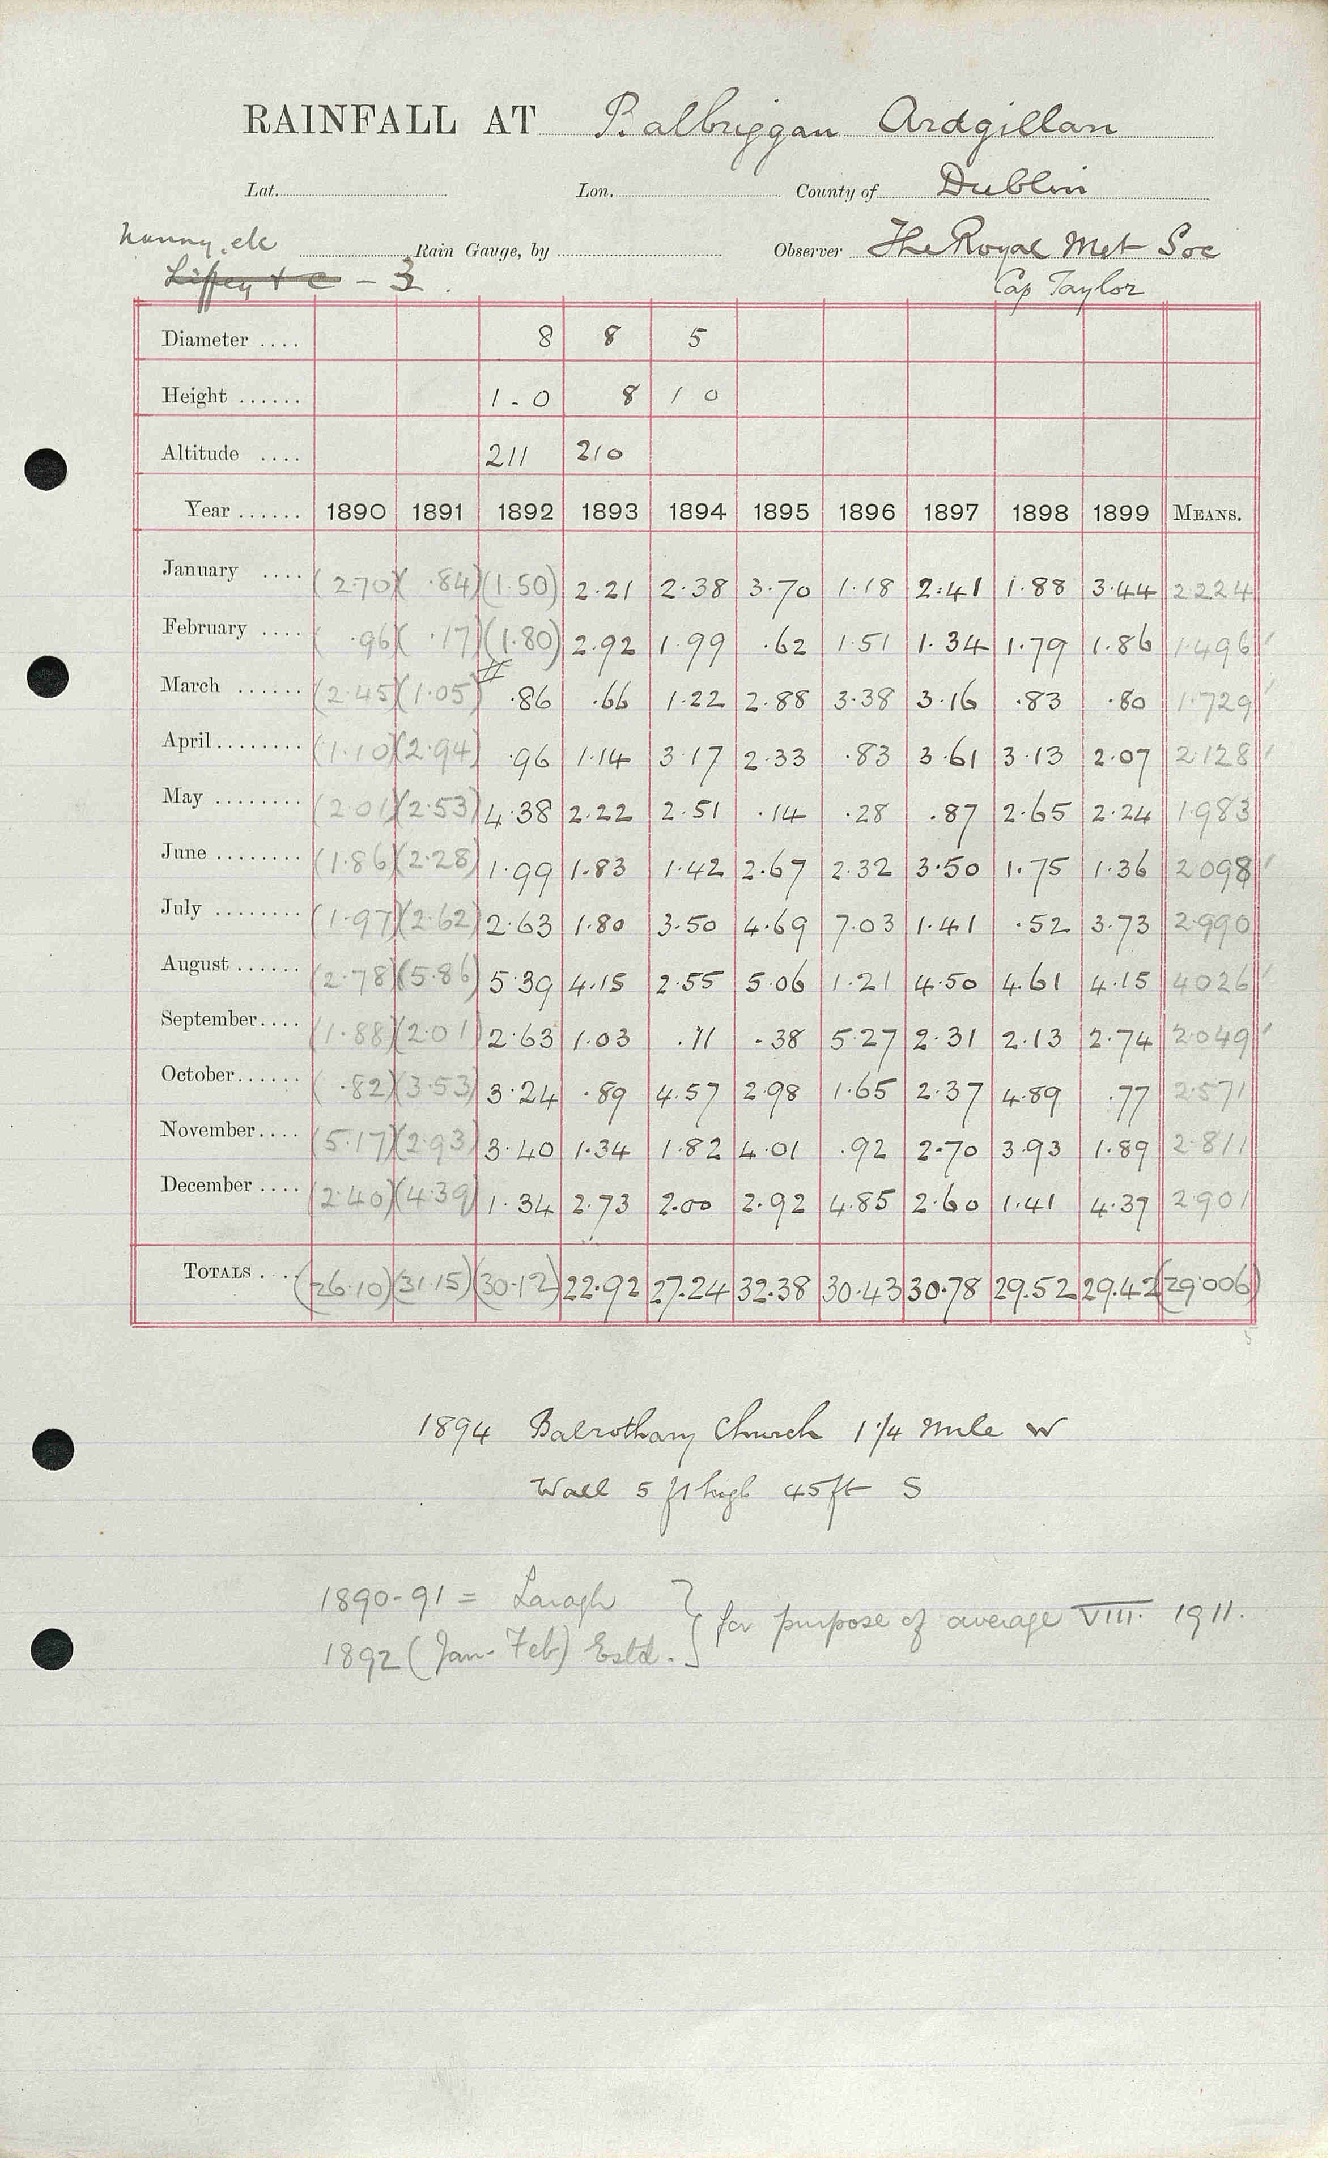 RAINFALL AT Balbriggan Ardgillan
Lat. Lon. County of Dublin
Nanny, etc Rain Gauge, by Observer The Royal Met Soc
Liffey & c - 3. Cap Taylor
Diameter .... 8 8 5
Height ...... 1.0 8 1 0
Altitude .... 211 210
Year ...... 1890 1891 1892 1893 1894 1895 1896 1897 1898 1899 MEANS.
January .... (2.70) (.84) (1.50) 2.21 2.38 3.70 1.18 2.41 1.88 3.44 2.224
February .... (.96) (.17) (1.80) 2.92 1.99 .62 1.51 1.34 1.79 1.86 1.496
March ...... (2.45) (1.05) .86 .66 1.22 2.88 3.38 3.16 .83 .80 1.729
April........ (1.10) (2.94) .96 1.14 3.17 2.33 .83 3.61 3.13 2.07 2.128
May ........ (2.01) (2.53) 4.38 2.22 2.51 .14 .28 .87 2.65 2.24 1.983
June ........ (1.86) (2.28) 1.99 1.83 1.42 2.67 2.32 3.50 1.75 1.36 2.098
July ........ (1.97) (2.62) 2.63 1.80 3.50 4.69 7.03 1.41 .52 3.73 2.990
August ...... (2.78) (5.86) 5.39 4.15 2.55 5.06 1.21 4.50 4.61 4.15 4.026
September.... (1.88) (2.01) 2.63 1.03 .11 .38 5.27 2.31 2.13 2.74 2.049
October...... (.82) (3.53) 3.24 .89 4.57 2.98 1.65 2.37 4.89 .77 2.571
November.... (5.17) (2.93) 3.40 1.34 1.82 4.01 .92 2.70 3.93 1.89 2.811
December .... (2.40) (4.39) 1.34 2.73 2.00 2.92 4.85 2.60 1.41 4.37 2.901
TOTALS ... (26.10) (31.15) (30.12) 22.92 27.24 32.38 30.43 30.78 29.52 29.42 (29.006)
5
1894 Balrothary Church 1 1/4 mile W
Wall 5 ft high 45 ft S
1890-91 = Laragh
1892 (Jan-Feb) Estd. } for purpose of average VIII. 1911.